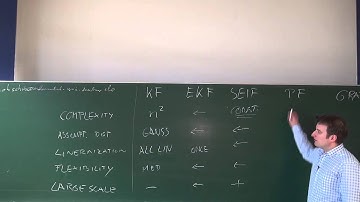 KF EKF SEIF PF GRA
COMPLEXITY n² ← CONST.
ASSUMPT. DIST GAUSS ← ←
LINEARIZATION ALL LIN ONCE ← ←
FLEXIBILITY MED ← ←
LARGE SCALE — ← +